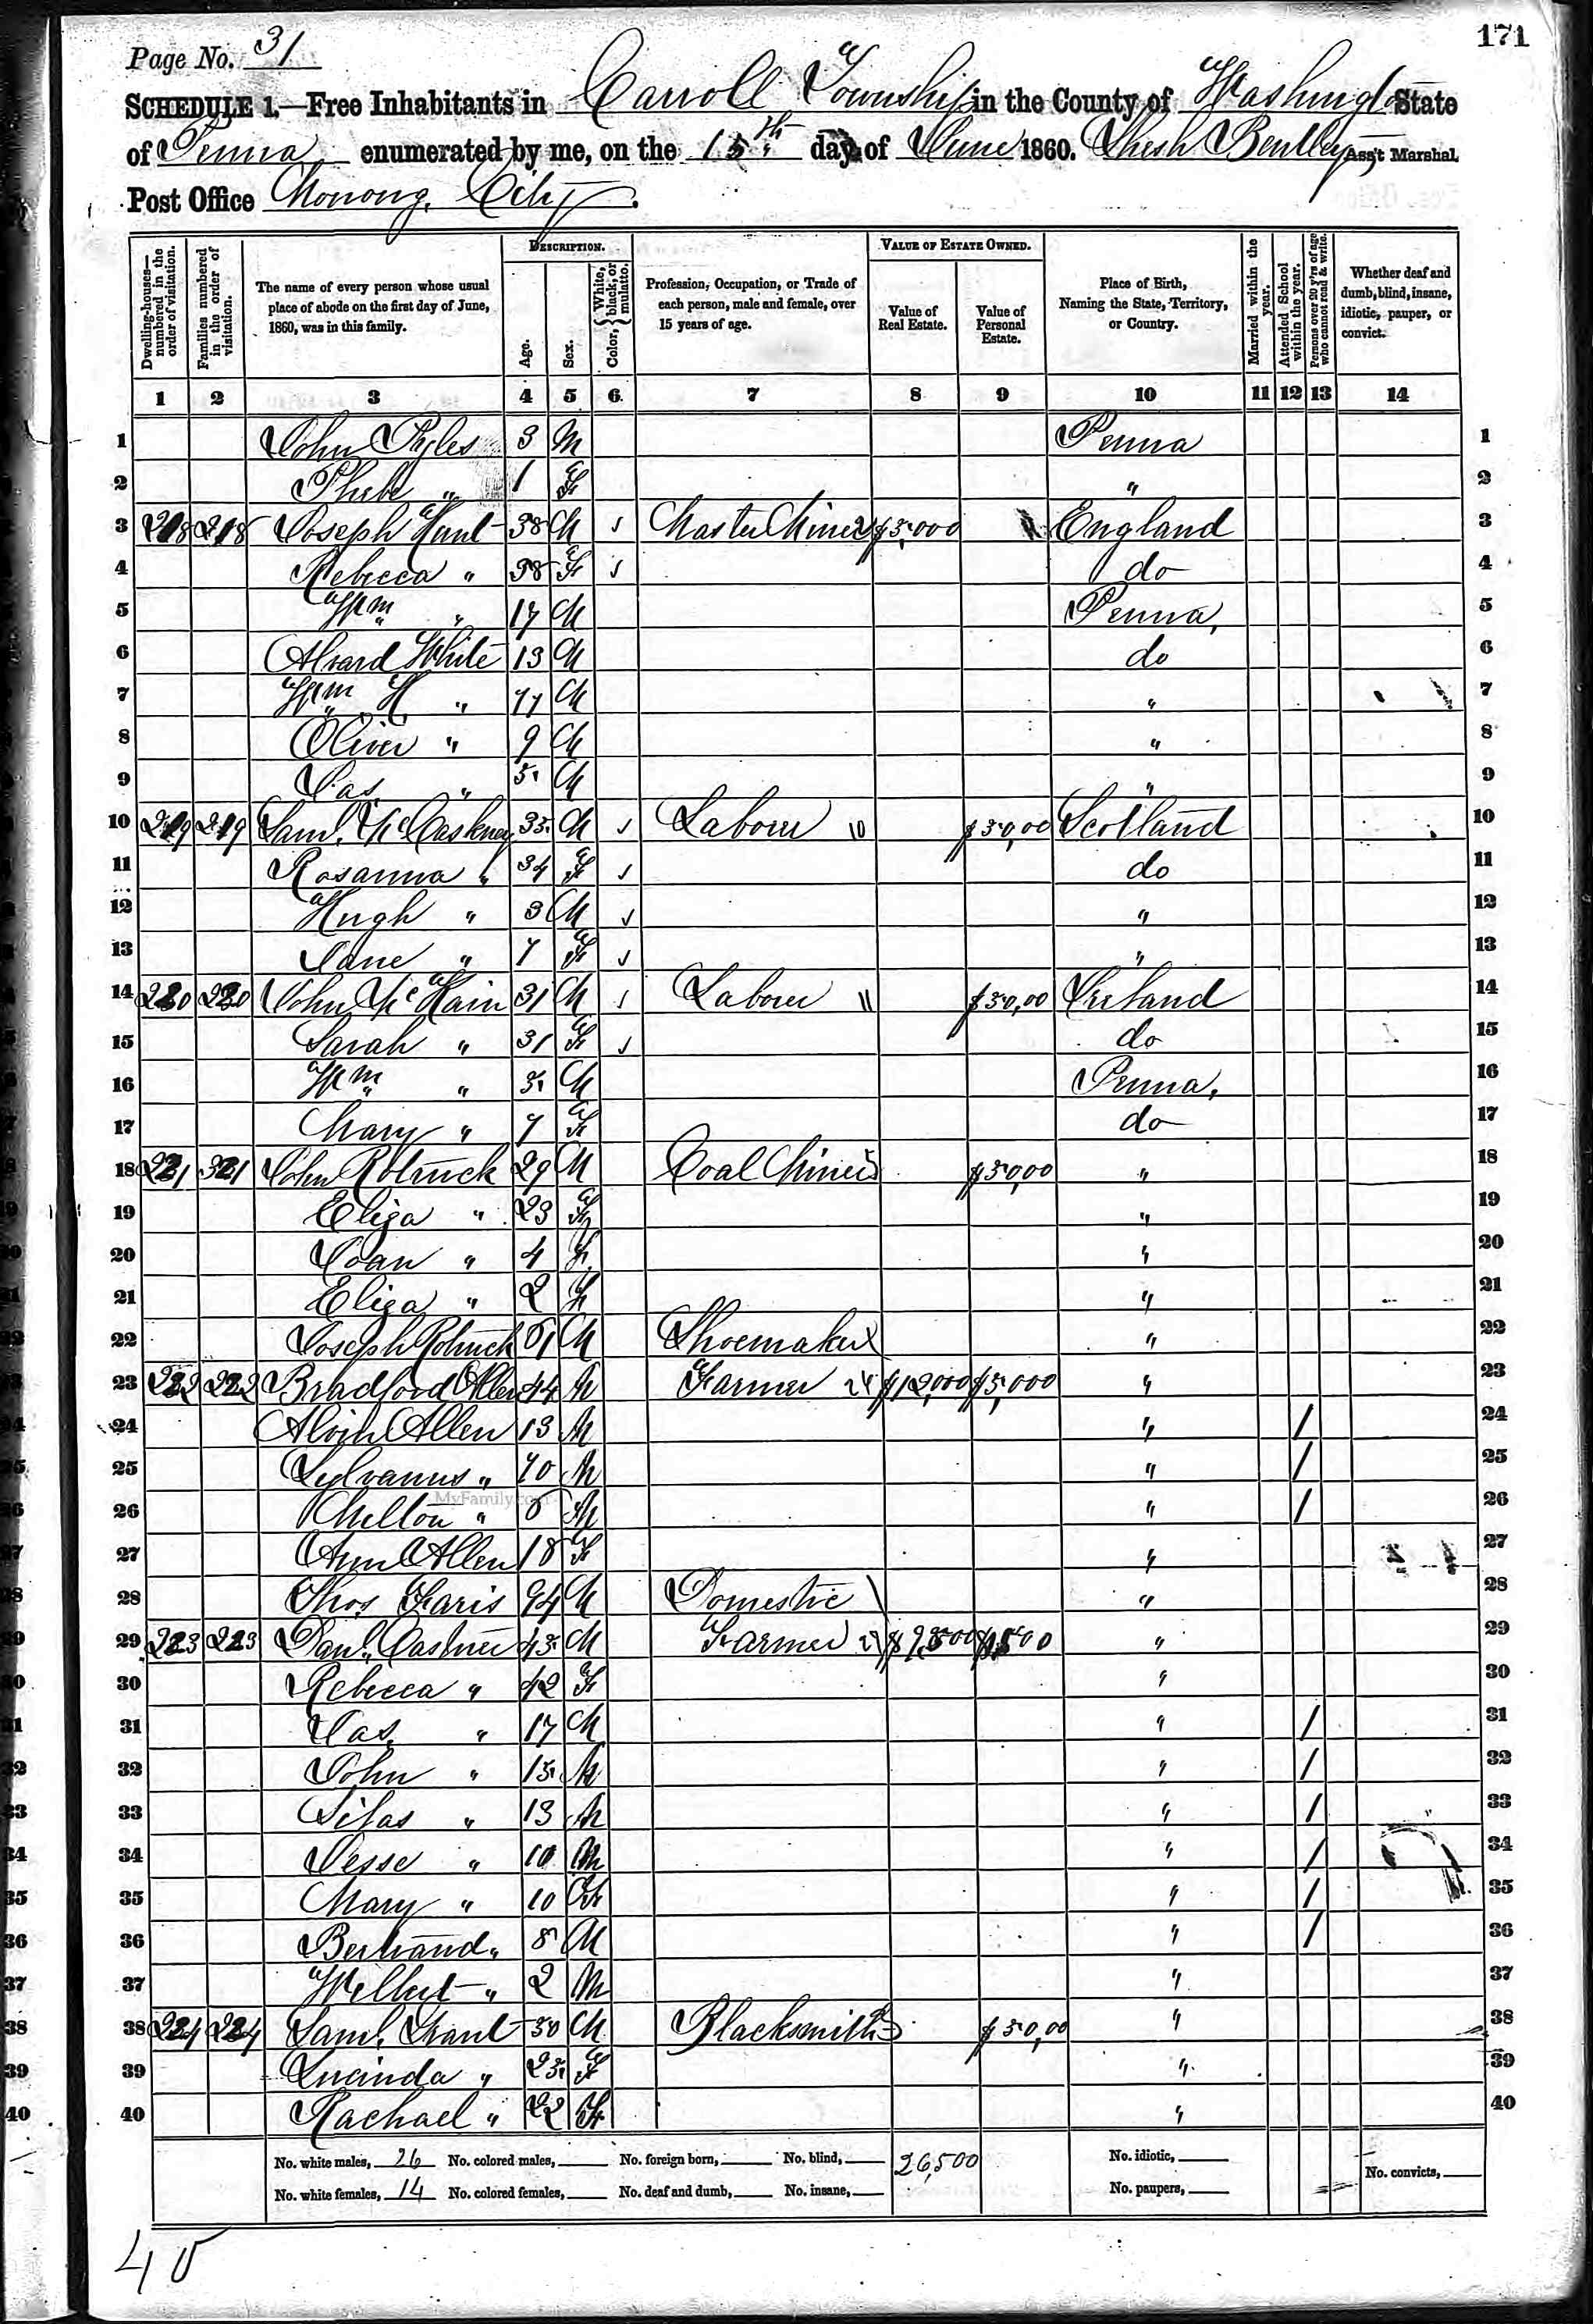 171
Page No. 31
SCHEDULE 1.—Free Inhabitants in Carroll Township in the County of Washington State
of Penna enumerated by me, on the 15th day of June 1860. Shesh Bentley Ass't Marshal.
Post Office Monong. City.
Dwelling-houses—numbered in the order of visitation. Families numbered in the order of visitation. The name of every person whose usual place of abode on the first day of June, 1860, was in this family. DESCRIPTION. Age. Sex. Color, { White, black, or mulatto. Profession, Occupation, or Trade of each person, male and female, over 15 years of age. VALUE OF ESTATE OWNED. Value of Real Estate. Value of Personal Estate. Place of Birth, Naming the State, Territory, or Country. Married within the year. Attended School within the year. Persons over 20 y'rs of age who cannot read & write. Whether deaf and dumb, blind, insane, idiotic, pauper, or convict.
1 2 3 4 5 6 7 8 9 10 11 12 13 14
1 John Pyles 3 M Penna 1
2 Phebe " 1 F " 2
3 218 218 Joseph Hunt 38 M Master Miner $5,000 England 3
4 Rebecca " 38 F do 4
5 Wm " 17 M Penna, 5
6 Alvard White 13 M do 6
7 Wm H " 11 M " 7
8 Oliver " 9 M " 8
9 Jas. " 5 M " 9
10 219 219 Saml. McCaskney 35 M Labour 10 $50,00 Scotland 10
11 Rosanna " 34 F do 11
12 Hugh " 3 M " 12
13 Jane " 1 F " 13
14 220 220 John McHain 31 M Labour 11 $50,00 Ireland 14
15 Sarah " 31 F do 15
16 Wm " 5 M Penna, 16
17 Mary " 7 F do 17
18 221 321 John Rotruck 29 M Coal Miner $50,00 " 18
19 Eliza " 23 F " 19
20 Joan " 4 F " 20
21 Eliza " 2 F " 21
22 Joseph Rotruck 61 M Shoemaker " 22
23 222 222 Bradford Allen 44 M Farmer 24 $12,000 $5,000 " 23
24 Alvin Allen 13 M " / 24
25 Sylvanus " 10 M " / 25
26 Milton " 6 M " / 26
27 Ann Allen 18 F " 27
28 Thos Faris 94 M Domestic " 28
29 223 223 Danl. Castner 45 M Farmer $9,500 $1,500 " 29
30 Rebecca " 42 F " 30
31 Jas. " 17 M " / 31
32 John " 15 M " / 32
33 Silas " 13 M " / 33
34 Jesse " 10 M " / 34
35 Mary " 10 F " / 35
36 Bertrand " 8 M " / 36
37 Wilbert " 2 M " 37
38 224 224 Saml. Grant 30 M Blacksmith $50,00 " 38
39 Lucinda " 25 F " 39
40 Rachael " 22 F " 40
No. white males, 26 No. colored males, No. foreign born, No. blind, 26,500 No. idiotic,
No. white females, 14 No. colored females, No. deaf and dumb, No. insane, No. paupers, No. convicts,
40
MyFamily.com